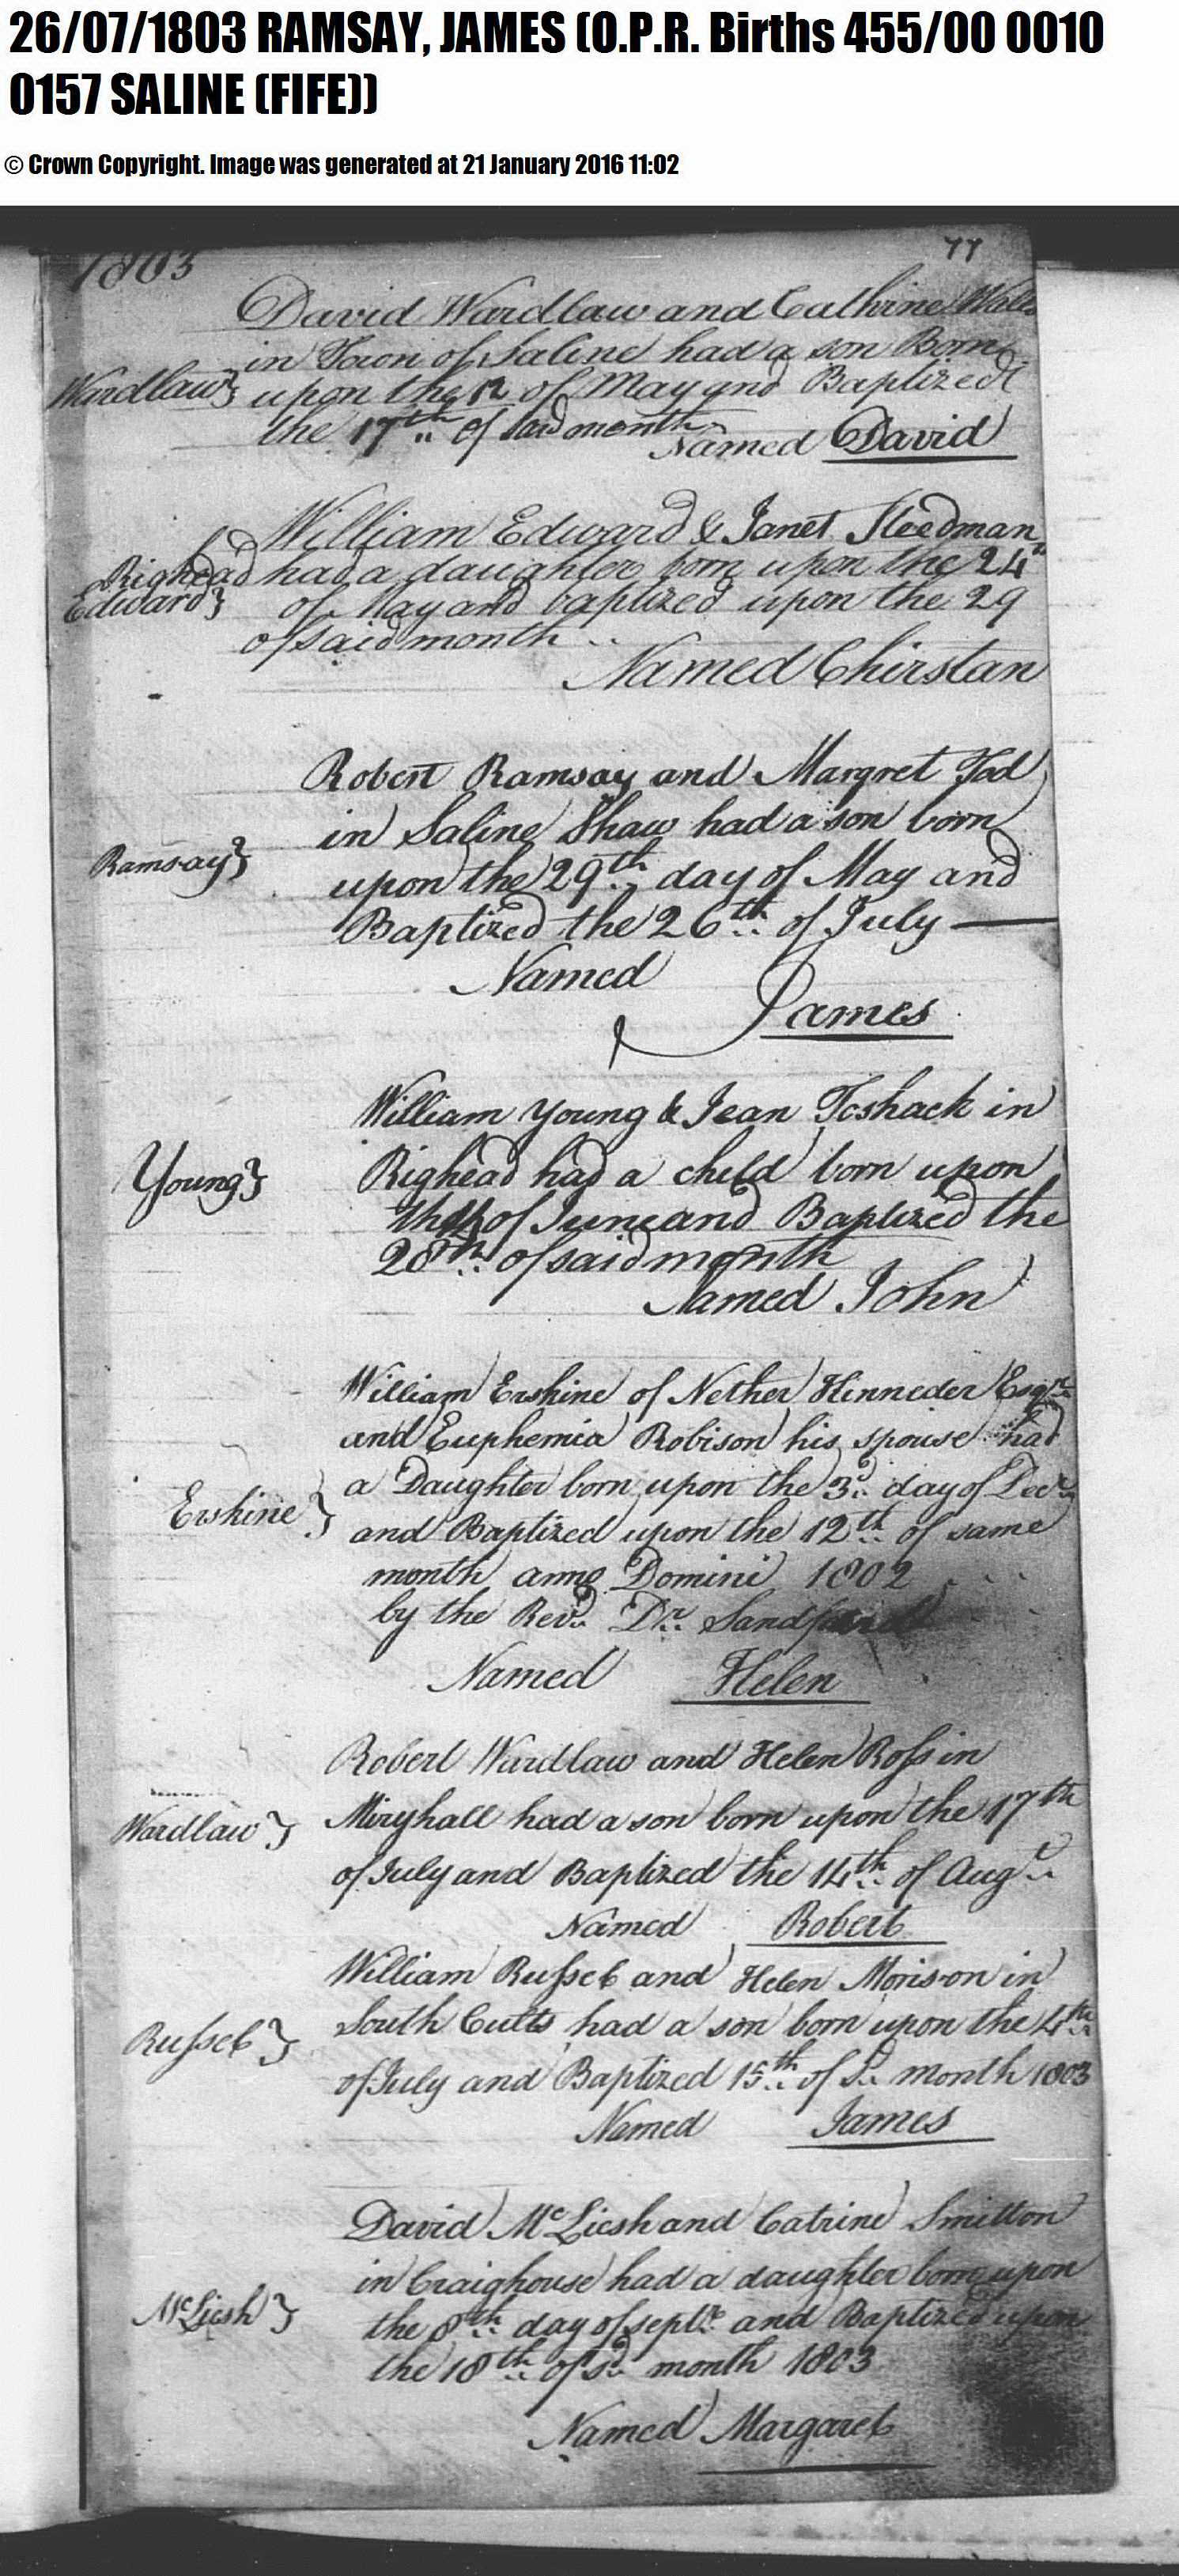 26/07/1803 RAMSAY, JAMES (O.P.R. Births 455/00 0010
0157 SALINE (FIFE))
© Crown Copyright. Image was generated at 21 January 2016 11:02
1803
77
David Wardlaw and Cathrine
in Town of Saline had a son Born
Wardlaw} upon the 12 of May and Baptized
the 17th of said month
Named David
William Edward & Janet Steedman
Righead had a daughter born upon the 24th
Edward} of May and baptized upon the 29
of said month ..
Named Chirstan
Robert Ramsay and Margret Tod
in Saline Shaw had a son born
Ramsay} upon the 29th day of May and
Baptized the 26th of July —
Named
James
William Young & Jean Toshack in
Young} Righead had a child born upon
the of June and Baptized the
28th of said month
Named John
William Erskine of Nether Kinneder Esqr
and Euphemia Robison his spouse had
a Daughter born upon the 3d day of Decr
Erskine} and Baptized upon the 12th of same
month anno Domini 1802
by the Revd Dr Sandford
Named Helen
Robert Wardlaw and Helen Ross in
Wardlaw} Miryhall had a son born upon the 17th
of July and Baptized the 14th of Augt
Named Robert
William Russel and Helen Morison in
Russel} South Cults had a son born upon the 4th
of July and Baptized 15th of Sd month 1803
Named James
David McLiesh and Catrine Smitton
in Craighouse had a daughter born upon
McLiesh} the 8th day of Septr and Baptized upon
the 18th of sd month 1803
Named Margaret